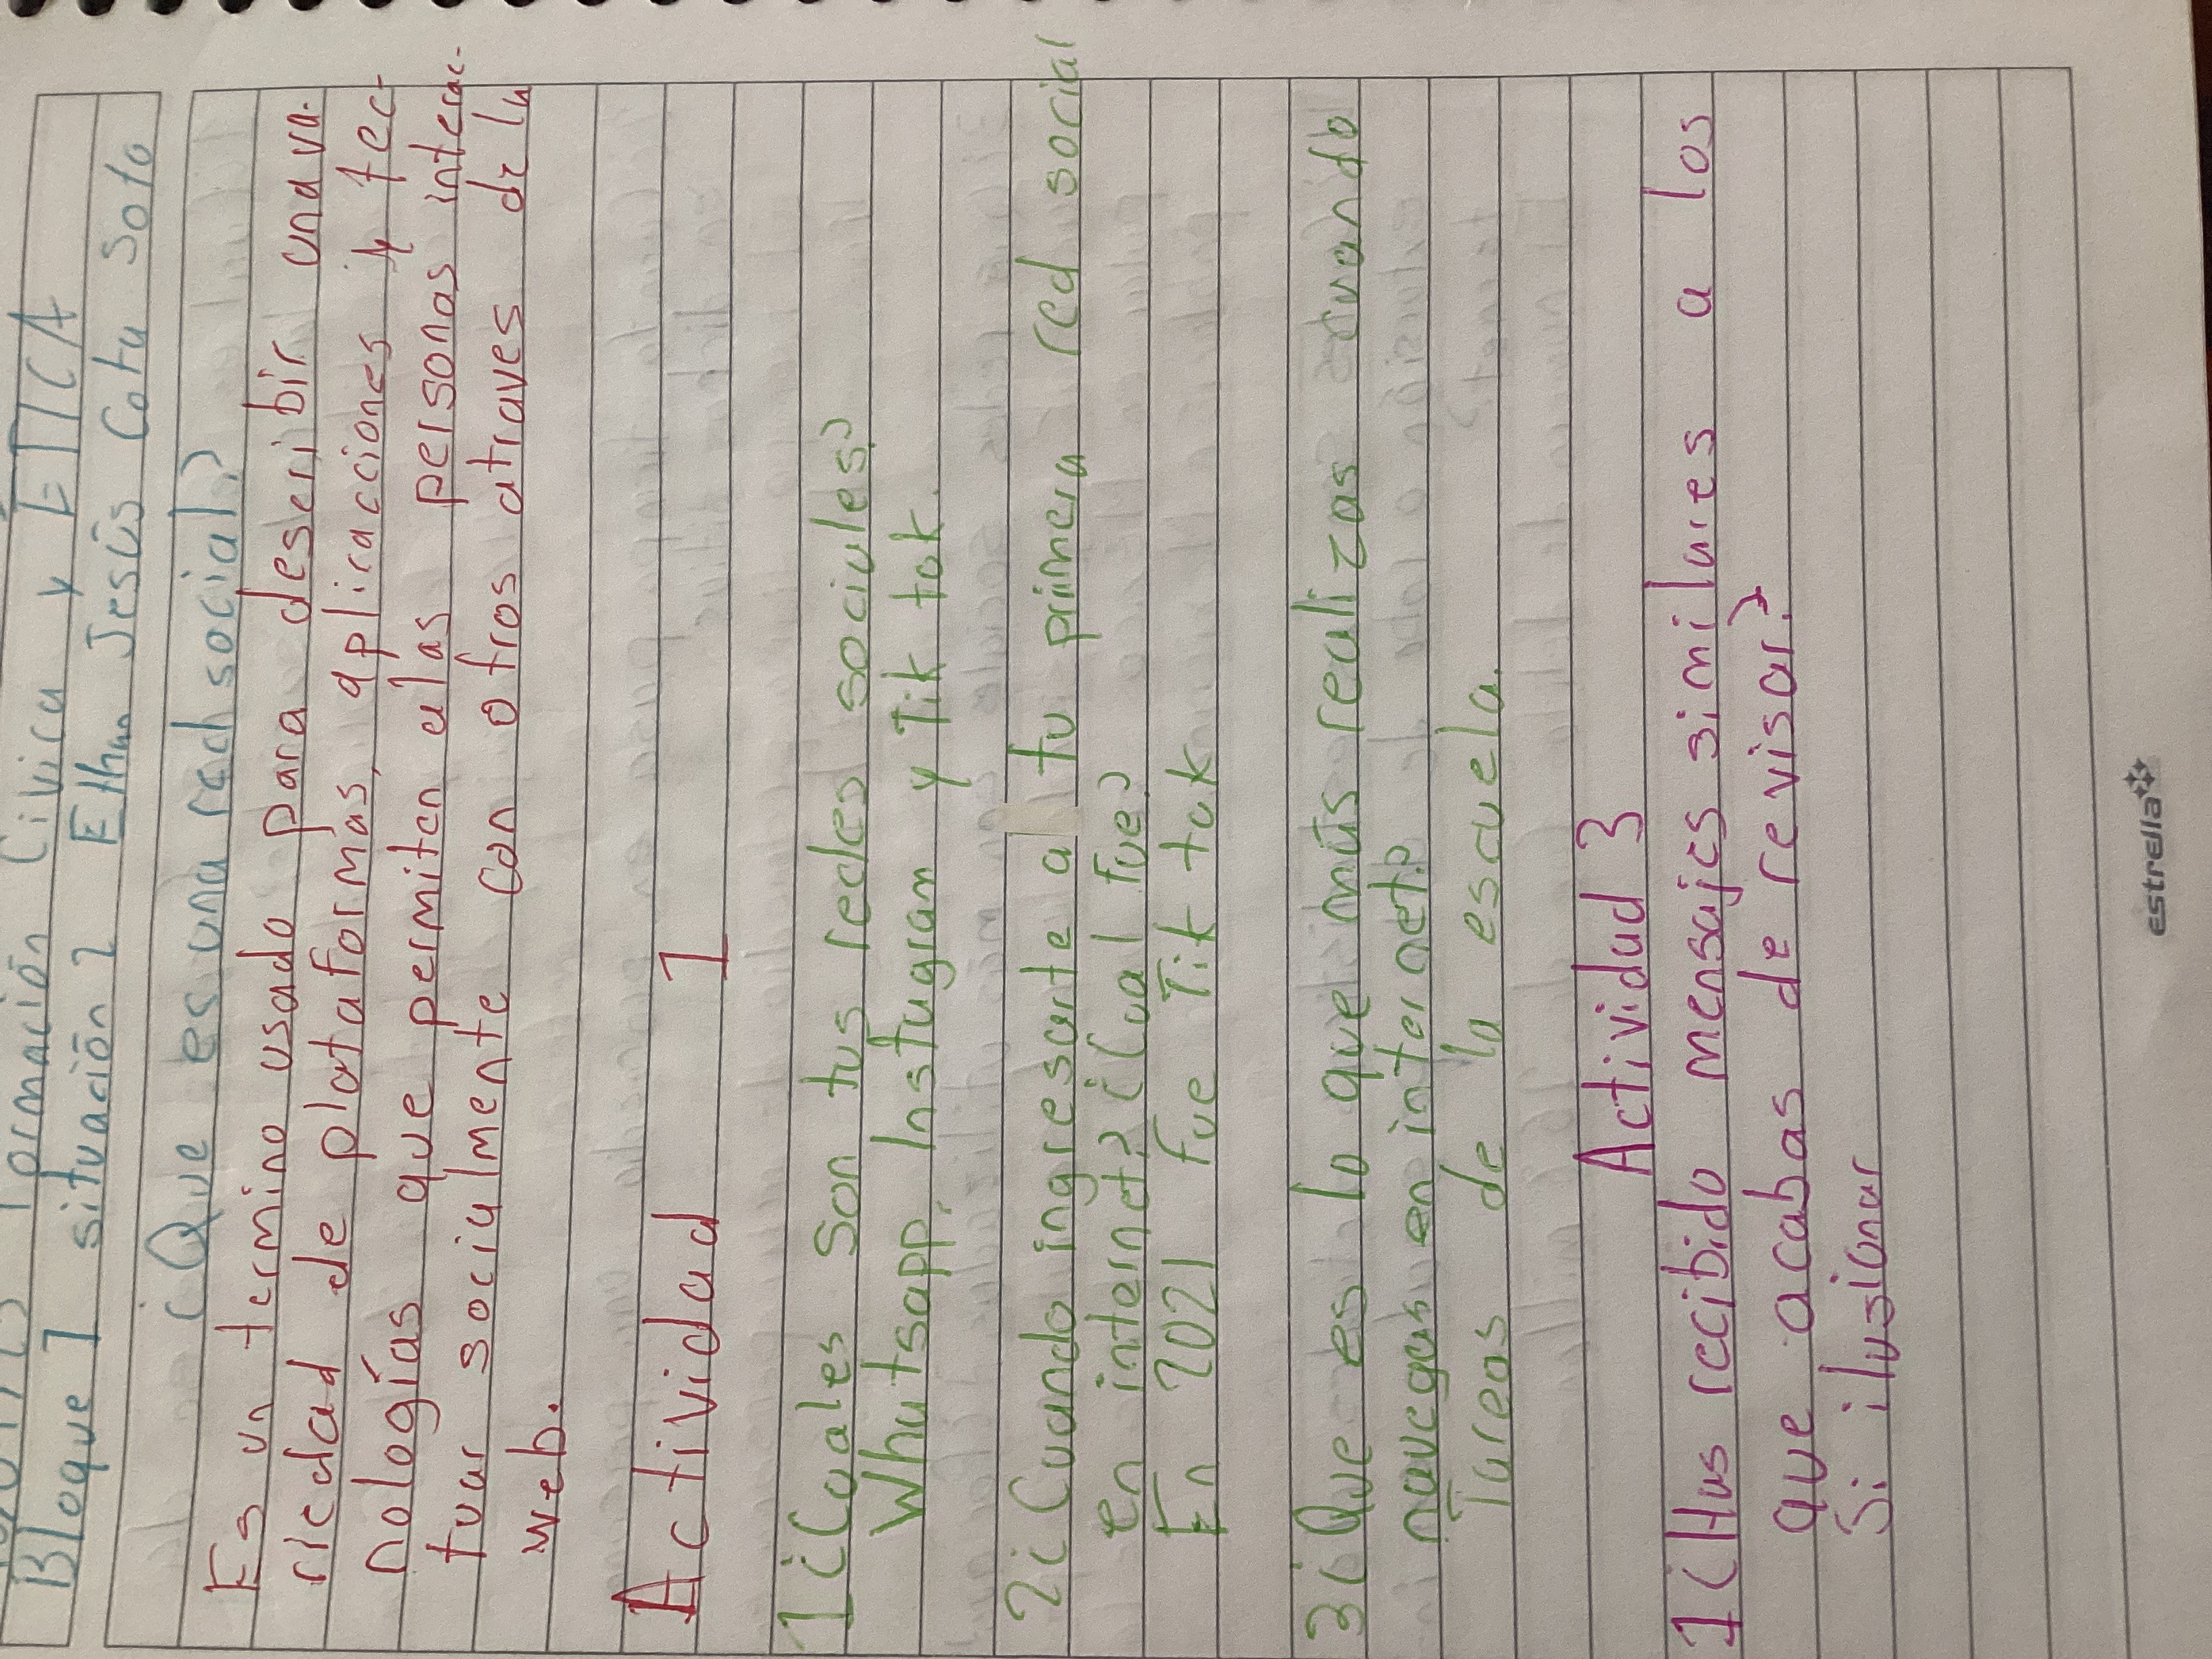 Formación Civica y ETICA
Bloque 1 situación 2 Ethan Jesús Cota Soto
¿Que es una red social?
Es un termino usado para describir una va-
riedad de plataformas, aplicacciones y tec-
nologías que permiten alas personas interac-
tuar socialmente con otros atraves de la
web.
Actividad 1
1 ¿Cuales son tus redes sociales?
Whatsapp, Instagram y Tik tok.
2 ¿Cuando ingresarte a tu primera red social
en internet? ¿Cual fue?
En 2021 fue Tik tok
3 ¿Que es lo que más realizas cuando
navegas en internet?
Tareas de la escuela.
Actividad 3
1 ¿Has recibido mensajes similares a los
que acabas de revisar?
Si ilusionar
estrella